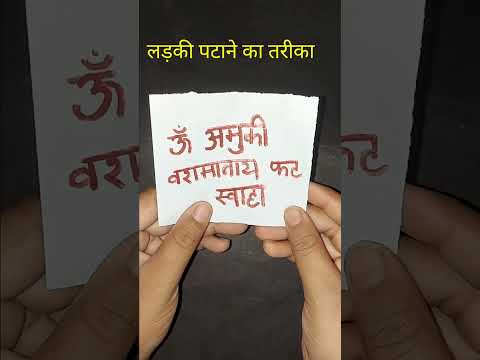 लड़की पटाने का तरीका
ॐ अमुकी
वशमानाय फट
स्वाहा